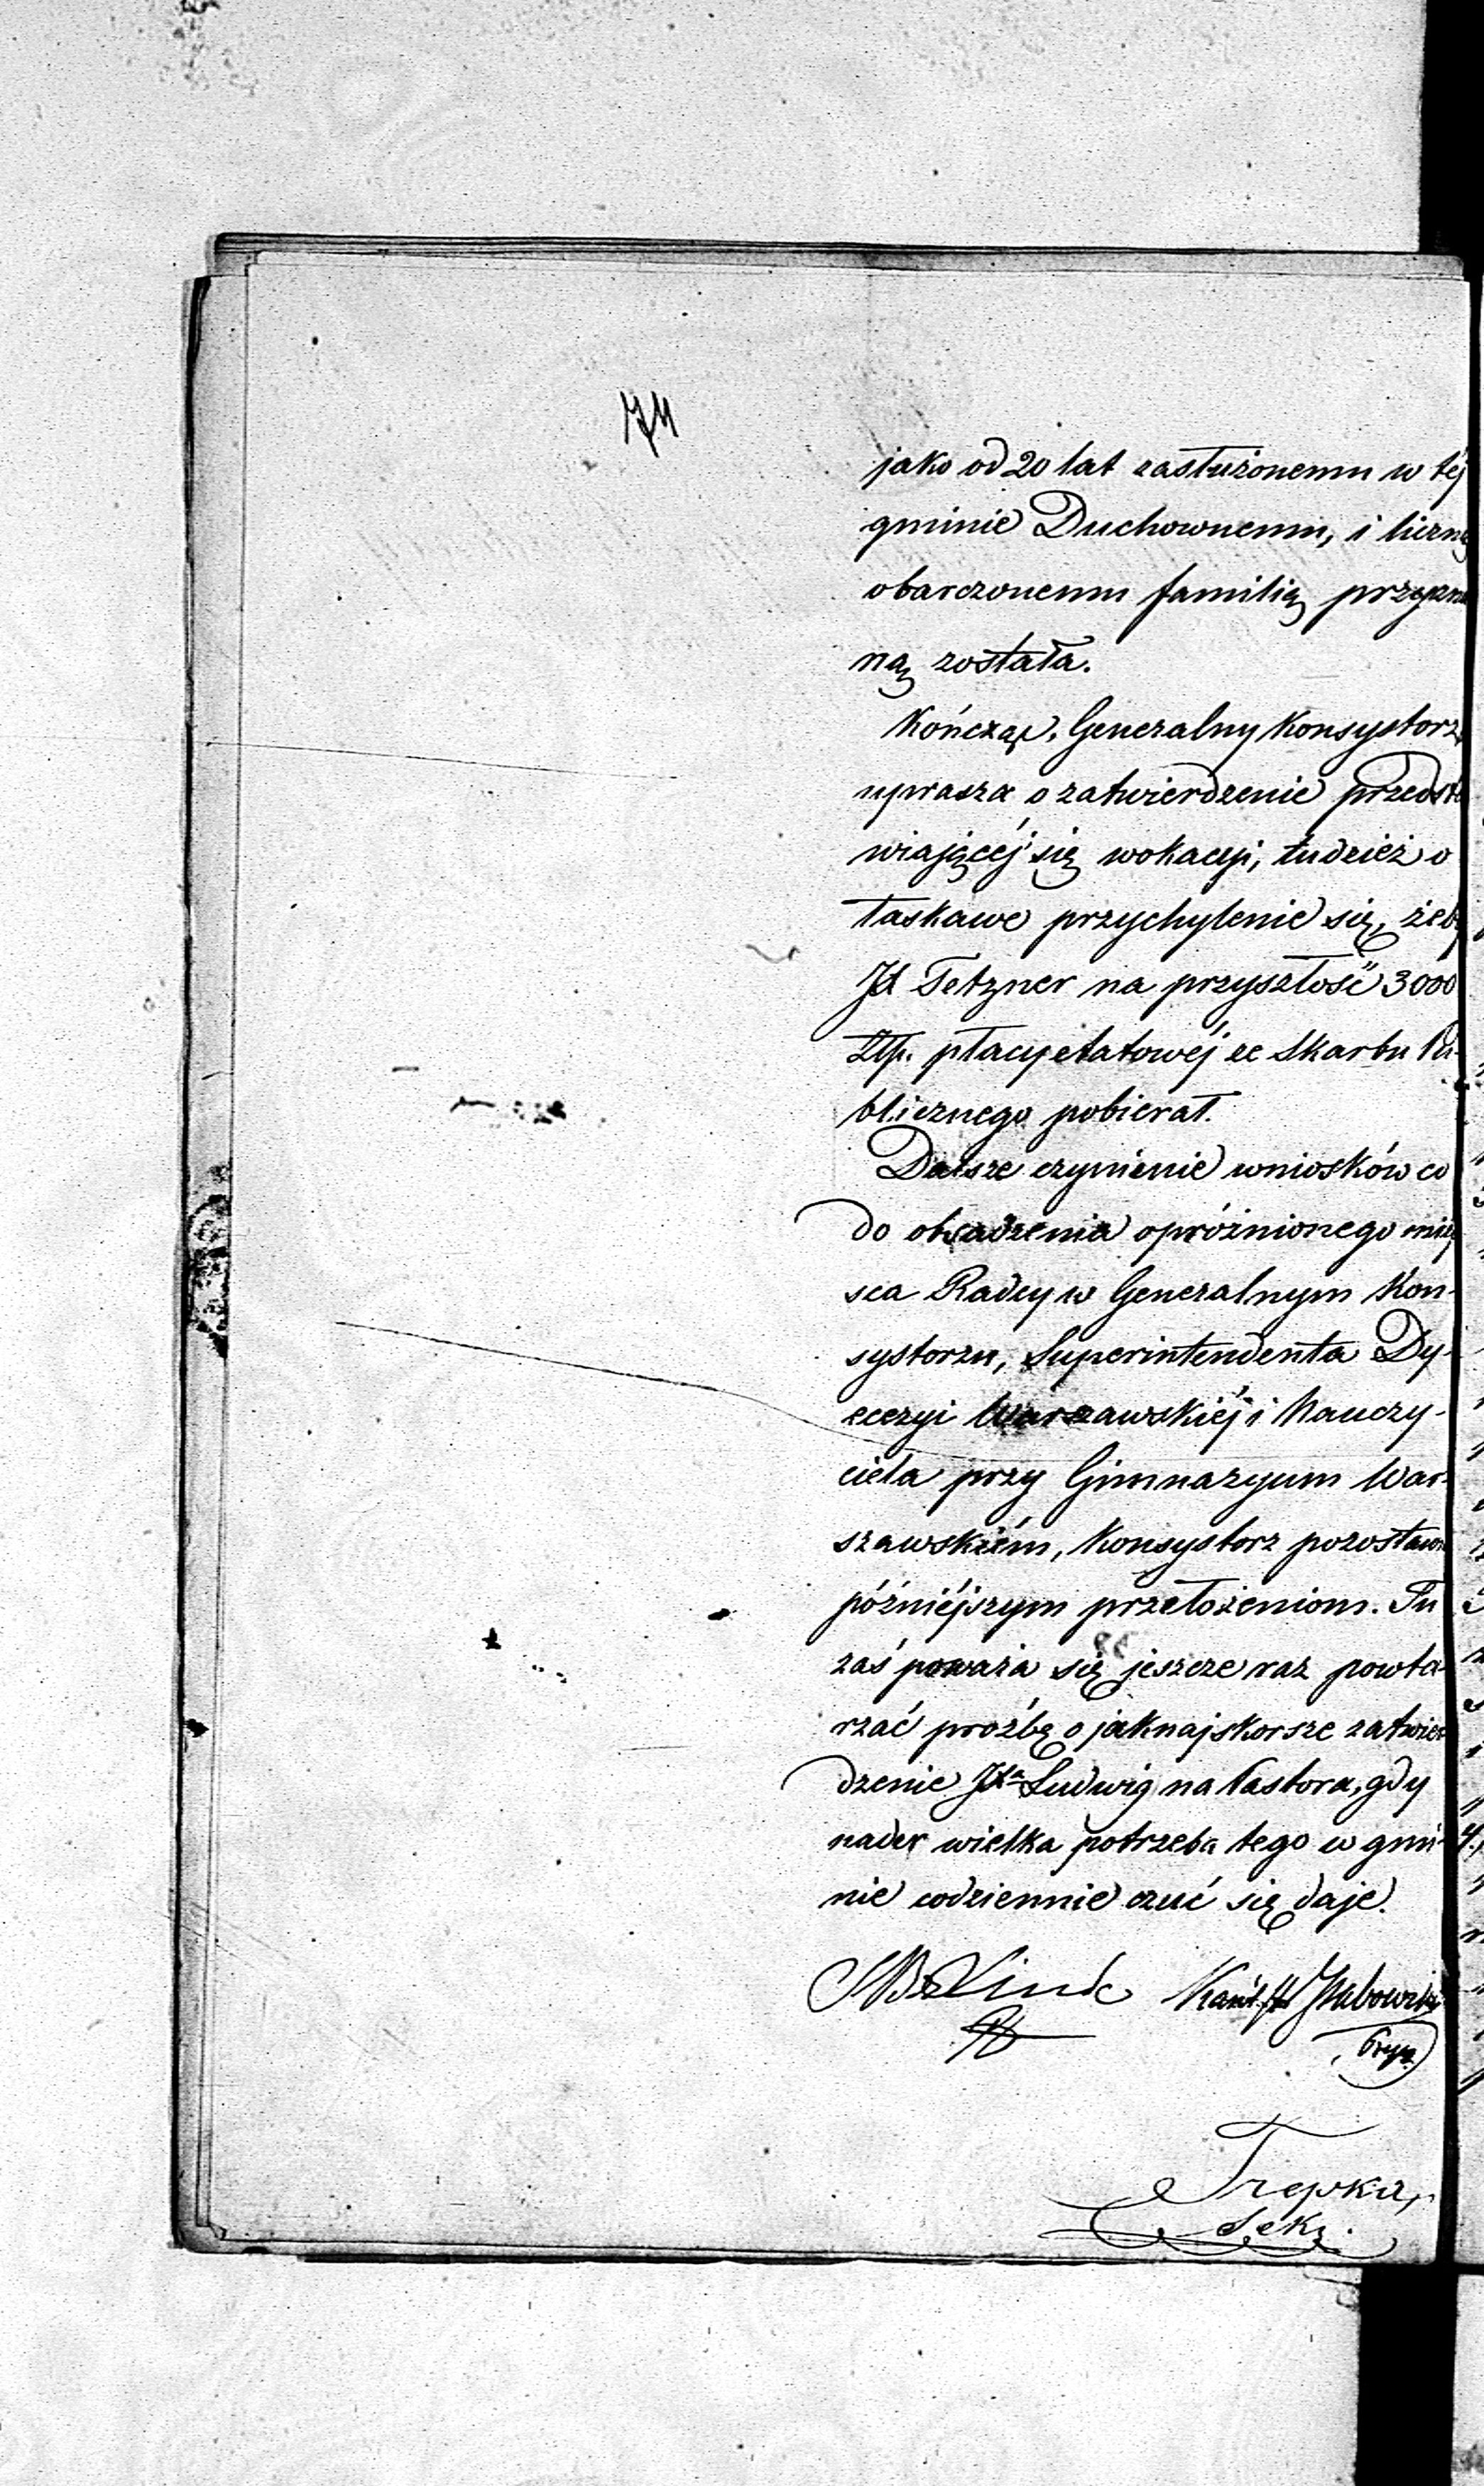 74
jako od 20 lat zasłużonemu w téj
gminie Duchownemu, i liczną
obarczonemu familią przyzna
ną została.
Kończąc, Generalny Konsystorz
uprasza o zatwierdzenie przedsta
wiającéj się wokacyi, tudzież o
łaskawe przychylenie się, żeby
JX Tetzner na przyszłość 3000
Złp. płacy etatowéj ze Skarbu Pu-
blicznego pobierał.
Dalsze czynienie wniosków co
do obsadzenia opróżnionego miej
sca Radcy w Generalnym Kon-
systorzu, Superintendenta Dy-
ecezyi Warszawskiéj i Nauczy-
ciela przy Gimnazyum War-
szawskiém, Konsystorz pozostawia
późniéjszym przełożeniom. Tu
zaś poważa się jeszcze raz powta-
rzać prozbę o jaknajskorsze zatwier
dzenie JXa Ludwig na Pastora, gdy
nader wielka potrzeba tego w gmi-
nie codziennie czuć się daje.
Linde
Trepka,
Sekr.